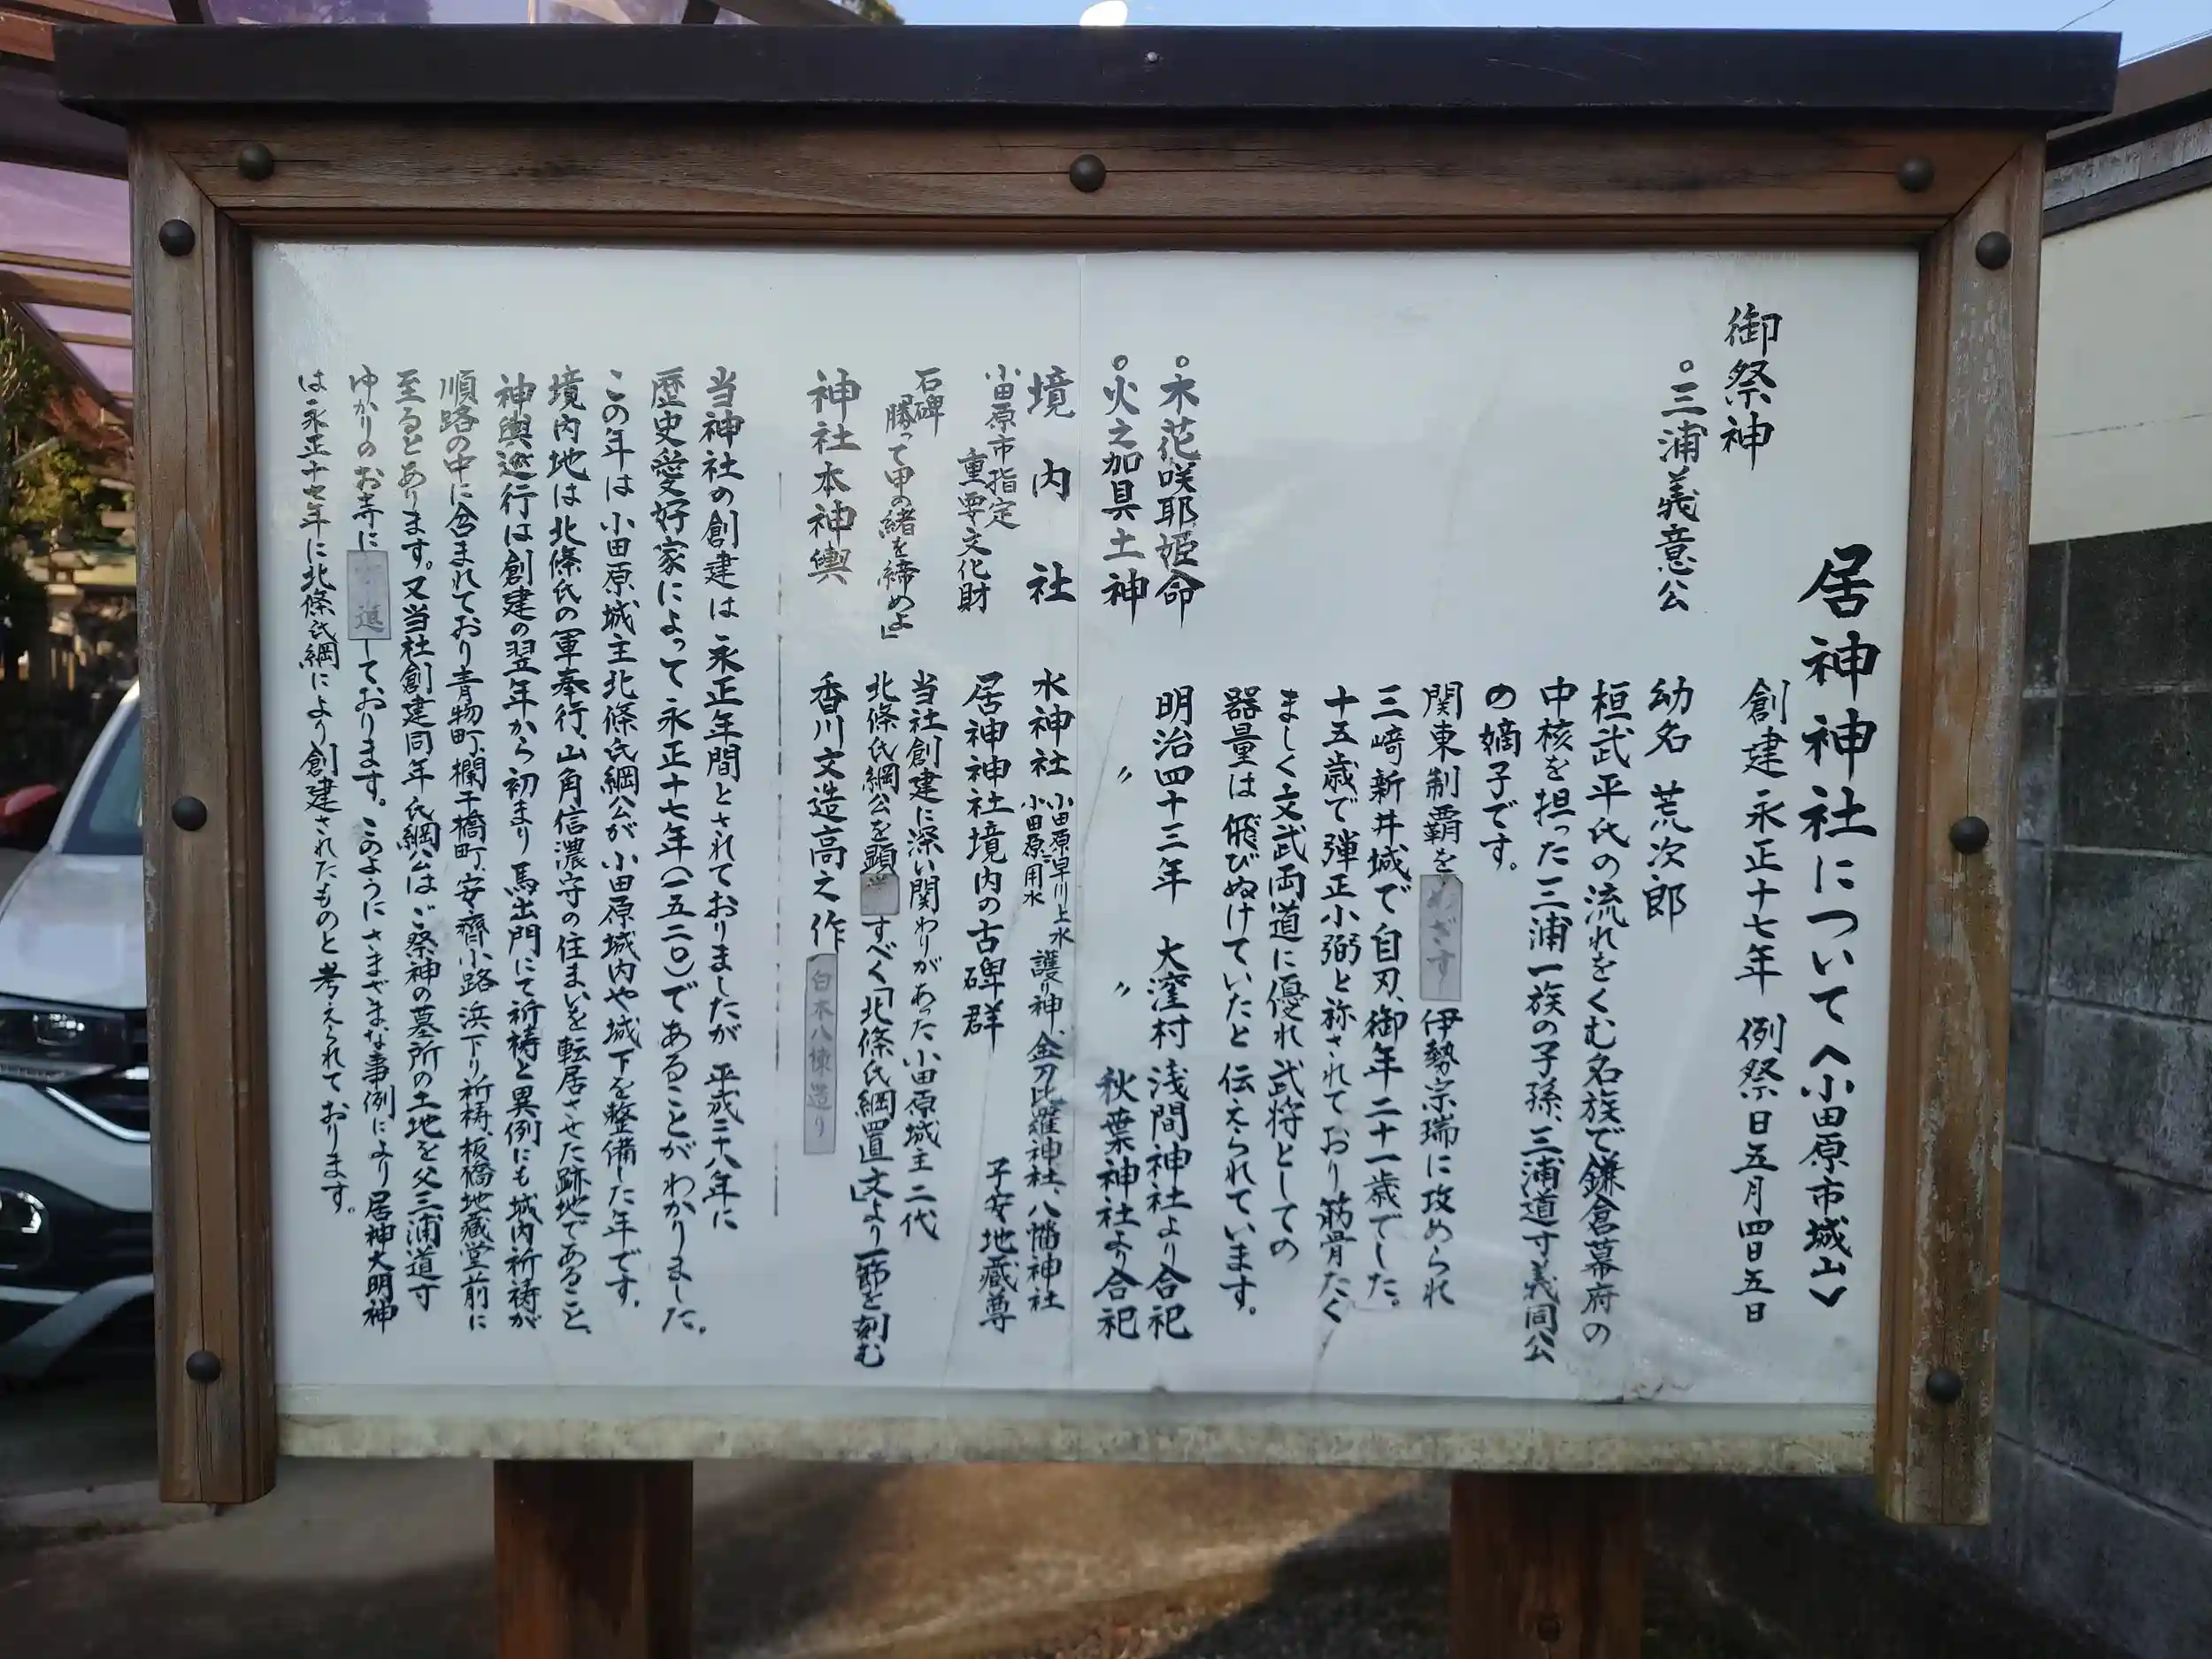 居神神社について〈小田原市城山〉
創建 永正十七年 例祭日五月四日五日
御祭神
。三浦義意公
幼名 荒次郎
桓武平氏の流れをくむ名族で鎌倉幕府の
中核を担った三浦一族の子孫、三浦道寸義同公
の嫡子です。
関東制覇をめざす伊勢宗瑞に攻められ
三崎新井城で自刃、御年二十一歳でした。
十五歳で弾正小弼と称されており筋骨たく
ましく文武両道に優れ武将としての
器量は飛びぬけていたと伝えられています。
。木花咲耶姫命 明治四十三年 大窪村 浅間神社より合祀
。火之加具土神 〃 〃 秋葉神社より合祀
境内社 水神社 小田原早川上水 小田原用水 護り神、金刀比羅神社、八幡神社
子安地蔵尊
小田原市指定
重要文化財
居神神社境内の古碑群
石碑
勝って甲の緒を締めよ」
当社創建に深い関わりがあった小田原城主二代
北條氏綱公を顕すべく「北條氏綱置文」より一節を刻む
神社本神輿 香川文造高之作 白木八棟造り
当神社の創建は永正年間とされておりましたが 平成二十八年に
歴史愛好家によって永正十七年(一五二〇)であることがわかりました。
この年は小田原城主北條氏綱公が小田原城内や城下を整備した年です。
境内地は北條氏の軍奉行山角信濃守の住まいを転居させた跡地であること、
神輿巡行は創建の翌年から初まり馬出門にて祈祷と異例にも城内祈祷が
順路の中に含まれており青物町、欄干橋町、安齊小路、浜下り祈祷、板橋地蔵堂前に
至るとあります。又当社創建同年氏綱公はご祭神の墓所の土地を父三浦道寸
ゆかりのお寺に進しております。このようにさまざまな事例により居神大明神
は永正十七年に北條氏綱により創建されたものと考えられております。